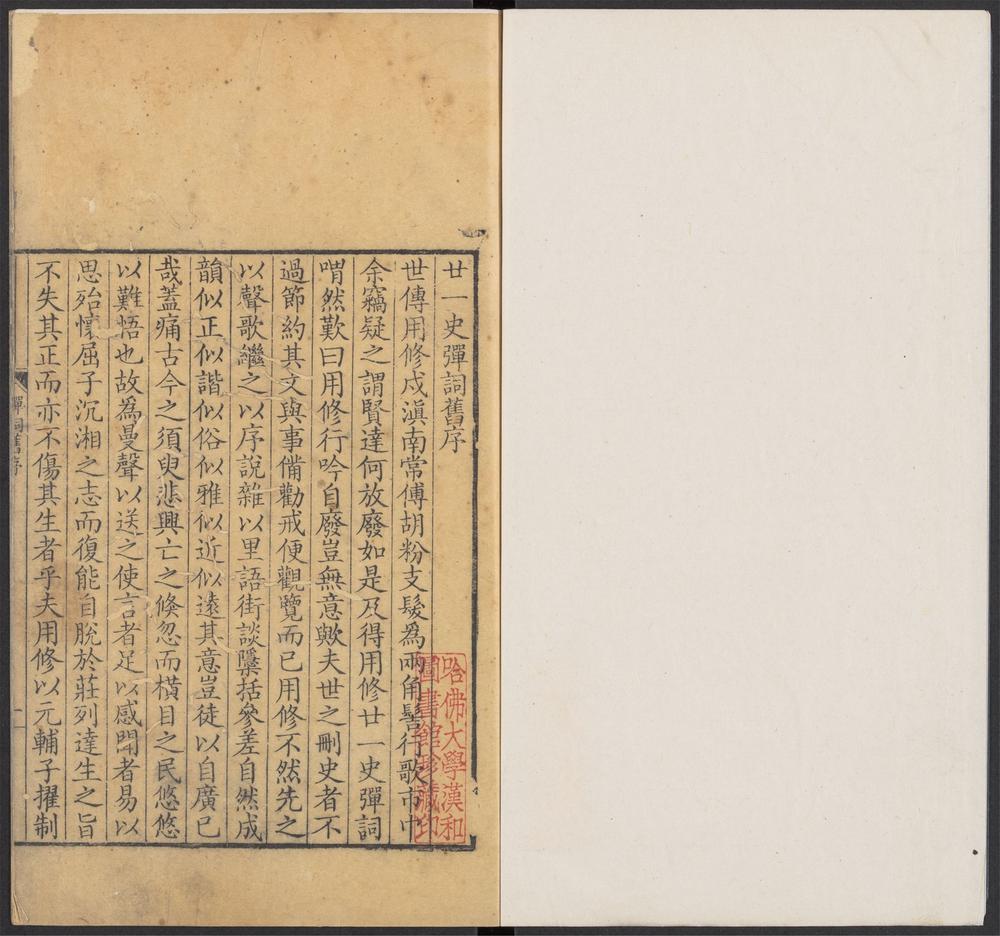 廿一史彈詞舊序
世傳用修戍滇南常傅胡粉支髮爲兩角髻行歌市中
余竊疑之謂賢達何放廢如是及得用修廿一史彈詞
喟然歎曰用修行吟自廢豈無意歟夫世之刪史者不
過節約其文與事備勸戒便觀覽而已用修不然先之
以聲歌繼之以序說雜以里語街談隱括參差自然成
韻似正似諧似俗似雅似近似遠其意豈徒以自廣已
哉蓋痛古今之須臾悲興亡之倐忽而橫目之民悠悠
以難悟也故爲曼聲以送之使言者足以感聞者易以
思殆懷屈子沉湘之志而復能自脫於莊列達生之旨
不失其正而亦不傷其生者乎夫用修以元輔子擢制
彈詞舊序
一
哈佛大學漢和
圖書館珍藏印